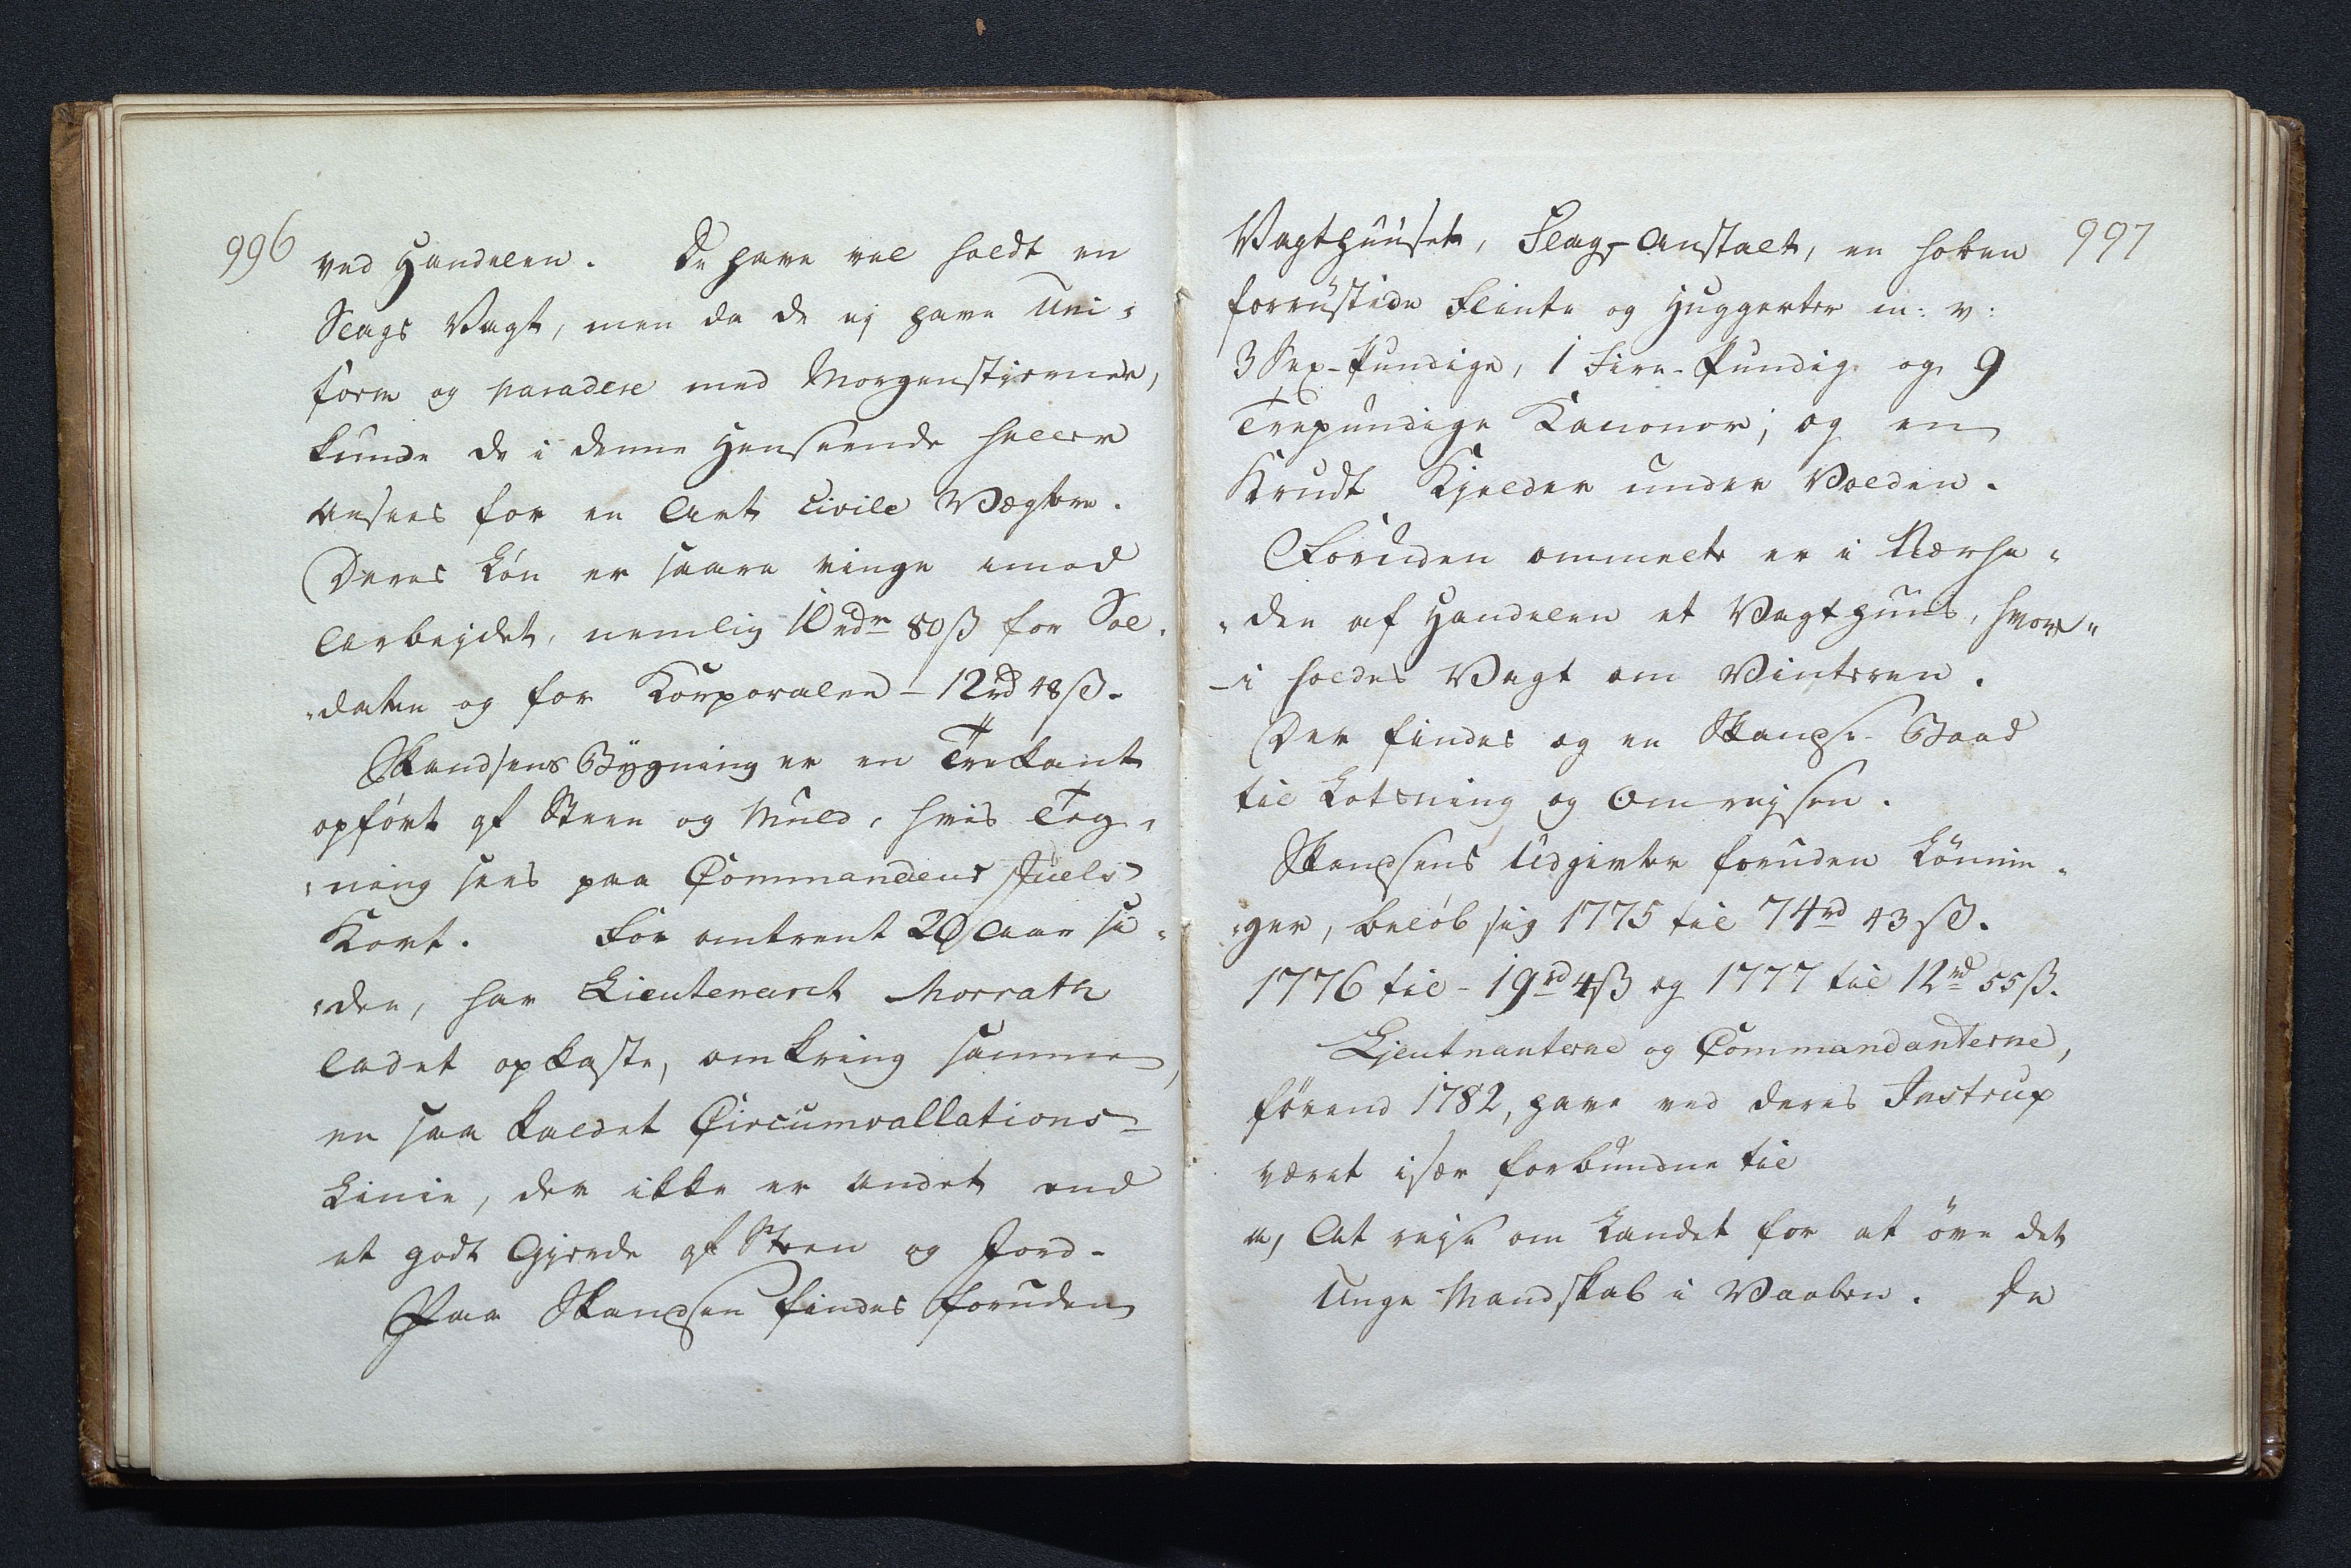 996
ved Handelen. De have vel holdt en
Slags Vagt, men da de ej have Uni-
form og paradere med Morgenstierner,
kunde de i denne Henseende heller
ansees for en Art civile Vægtere.
Deres Løn er saare ringe imod
Arbejdet, nemlig 10 rdr 80 ß for Sol-
daten og for Korporalen – 12 rd 48 ß.
Skandsens Bÿgning er en Trekant
opført af Steen og Muld, hvis Teg-
ning sees paa Commandeur Juels
Kort. For omtrent 20 Aar si-
den, har Lieutenant Morrath
ladet opkaste, omkring samme,
en saa kaldet Circumvallations-
Linie, der ikke er andet end
et godt Gjerde af Steen og Jord.
Paa Skandsen findes foruden
997
Vagthuuset, Flag-Anstalt, en hoben
forrustede Flinte og Huggerter m: v:
3 Sex-Pundige, 1 Fire-Pundig og 9
Trepundige Kanoner; og en
Krudt Kjelder under Volden.
Foruden ommelte er i Nærhe-
den af Handelen et Vagthuus, hvor-
i holdes Vagt om Vinteren.
Der findes og en Skandse-Baad
til Lotsning og Omrejsen.
Skandsens Udgivter foruden Lønnin-
ger, beløb sig 1775 til 74 rd 43 ß.
1776 til – 19 rd 4 ß og 1777 til 12 rd 55 ß.
Ljeutnanterne og Commandanterne,
førend 1782, have ved deres Instrux
været især forbundne til
a, At rejse om Landet for at øve det
Unge Mandskab i Vaaben. De